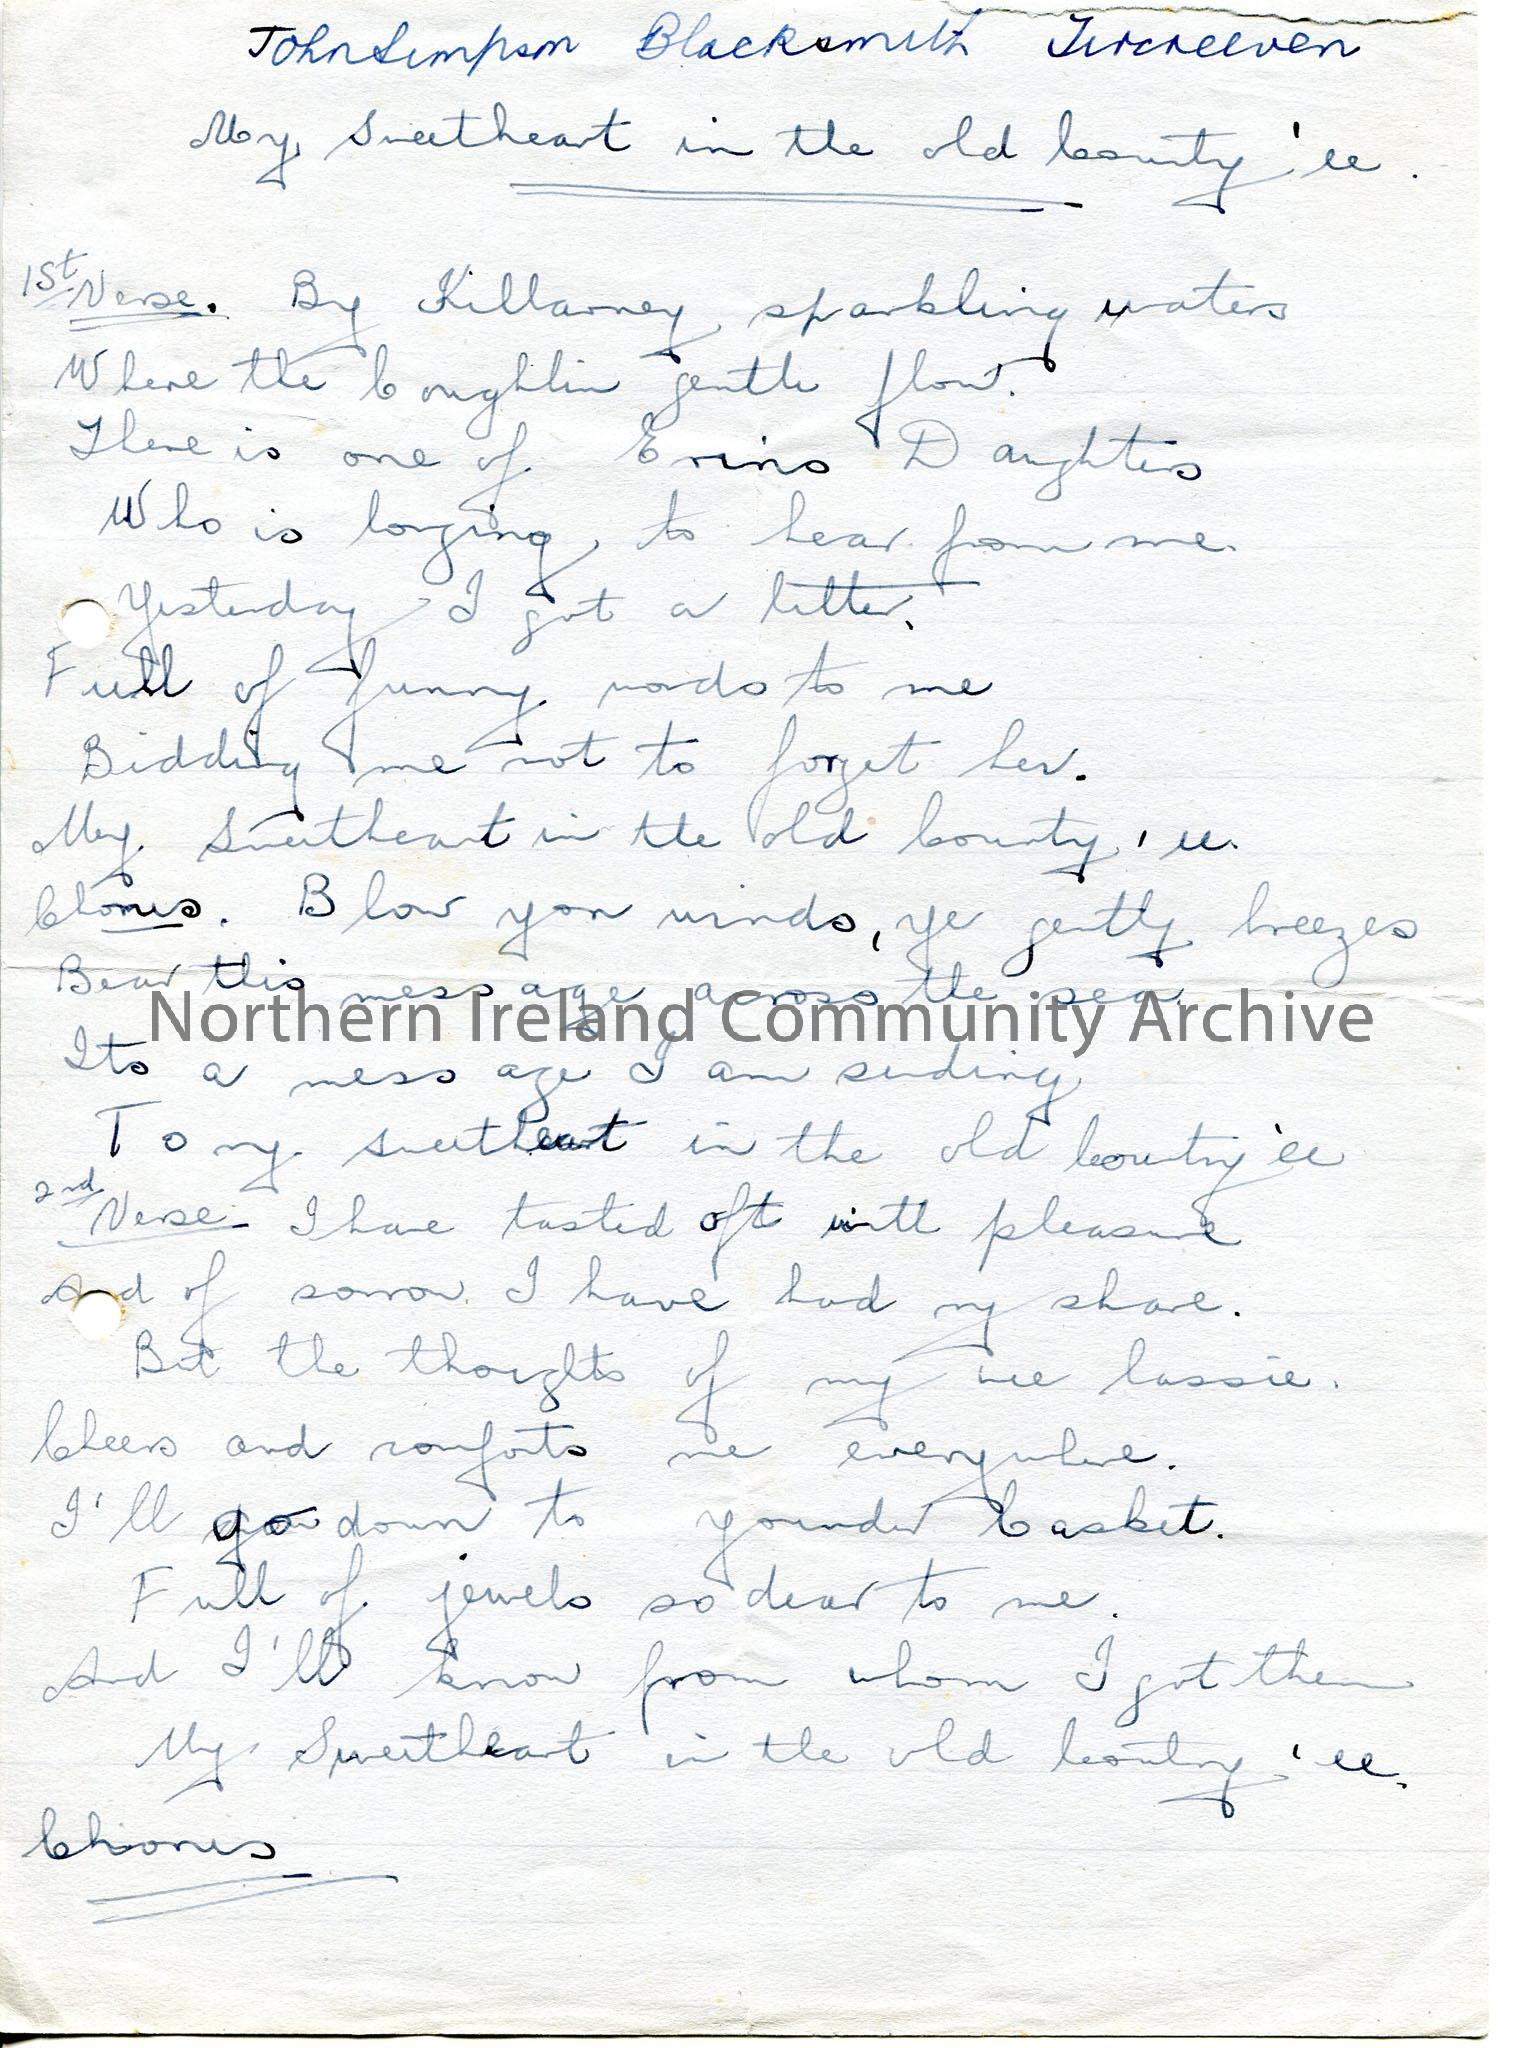 John Simpson Blacksmith Tircreeven
My Sweetheart in the old County 'ee.
1st Verse. By Killarney sparkling waters
Where the Coughlin gentle flow.
There is one of Erins Daughters
Who is longing to hear from me.
Yesterday I got a letter.
Full of funny words to me
Bidding me not to forget her.
My Sweetheart in the old County 'ee.
Chorus. Blow yon winds, ye gently breezes
Bear this message across the sea.
Northern Ireland Community Archive
Its a message I am sending
To my sweetheart in the old County 'ee
2nd Verse - I have tasted oft with pleasure
And of sorrow I have had my share.
But the thoughts of my wee lassie.
Cheers and comforts me everywhere.
I'll go down to younder Casket.
Full of jewels so dear to me.
And I'll know from whom I got them
My Sweetheart in the old Contry 'ee.
Chorus